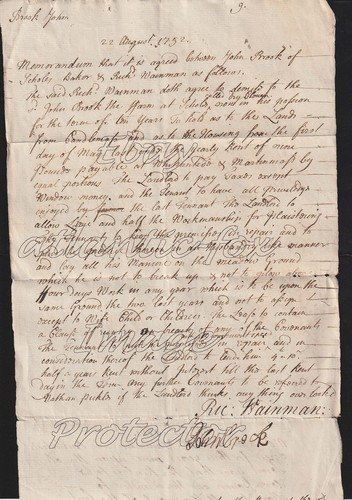 Brook John
9.
22 August 1752
Memorandum that it is agreed between John Brook of
Scholes Baker & Richd Wainman as follows.
The said Richd Wainman doth agree to demise to the
sd. John Brook the Farm at Scholes, now in his possion
for the term of Ten Years to hold as to the Land
from Candlemass and as to the Housing from the first
day of May last under the Yearly Rent of nine
Pounds payable at Whitsuntide & Martinmass by
equal portions. The Landlord to pay Taxes except
Window money, and the Tenant to have all priviledges
enjoyed by the last Tenant The Landlord to
allow Lime and half the Workmanship for plaistering
the House, to keep the premises in repair and to
in Husbandly like manner
and lay all his Manure on the Ground
which he is not to break up & not to plow abe
four days Work in any year which is to be upon the
same Ground the two last years and not to assign
except to Wife Child or Children. The Lease to contain
a Clause of on breach of any of the Covenants
The Tenant to put the in repair and in
consideration thereof the Landlord to lend him 4-10
half a year Rent without Interest till the last Rent
day in the Term. Any further Covenants to be referred to
Nathan Pickles if the Landlord thinks any thing omitted
Ric: Wainman:
John Brook
Ebay
Protector